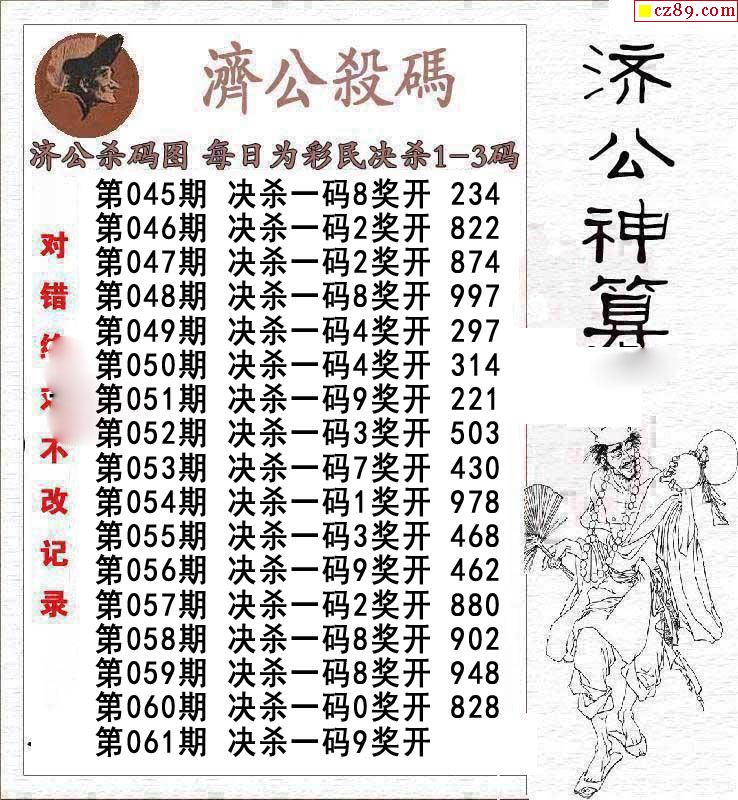 cz89.com
濟公殺碼
济公杀码图 每日为彩民决杀1-3码
第045期 决杀一码8奖开 234
第046期 决杀一码2奖开 822
第047期 决杀一码2奖开 874
第048期 决杀一码8奖开 997
第049期 决杀一码4奖开 297
第050期 决杀一码4奖开 314
第051期 决杀一码9奖开 221
第052期 决杀一码3奖开 503
第053期 决杀一码7奖开 430
第054期 决杀一码1奖开 978
第055期 决杀一码3奖开 468
第056期 决杀一码9奖开 462
第057期 决杀一码2奖开 880
第058期 决杀一码8奖开 902
第059期 决杀一码8奖开 948
第060期 决杀一码0奖开 828
第061期 决杀一码9奖开
对错不改记录
济公神算